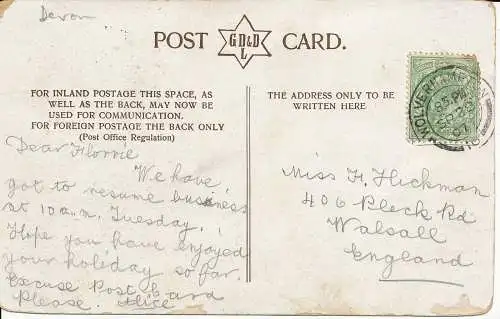 Devon
POST GDD&L CARD.
FOR INLAND POSTAGE THIS SPACE, AS
WELL AS THE BACK, MAY NOW BE
USED FOR COMMUNICATION.
FOR FOREIGN POSTAGE THE BACK ONLY
(Post Office Regulation)
THE ADDRESS ONLY TO BE
WRITTEN HERE
WOLVERHAMPTON
Dear Florrie
We have
got to resume business
at 10 a.m. Tuesday.
Hope you have enjoyed
your holiday so far.
Excuse Post Card
Please. Alice
Miss F. Hickman
406 Pleck Rd
Walsall
England